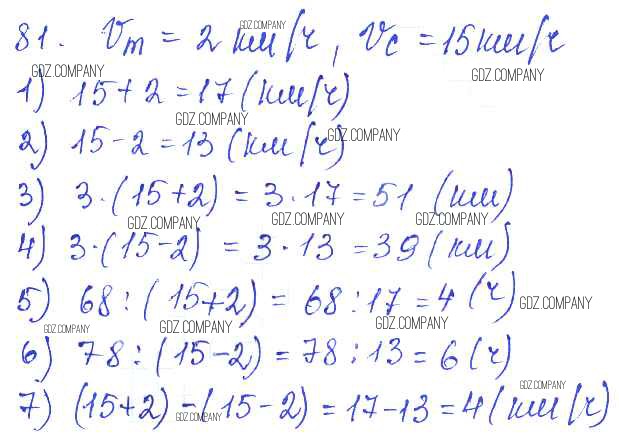 81. Vm = 2 км/ч, Vc = 15 км/ч
GDZ.COMPANY
GDZ.COMPANY GDZ.COMPANY
1) 15+2 = 17 (км/ч)
GDZ.COMPANY
GDZ.COMPANY
2) 15-2 = 13 (км/ч)
3) 3·(15+2) = 3·17 = 51 (км)
GDZ.COMPANY GDZ.COMPANY GDZ.COMPANY
4) 3·(15-2) = 3·13 = 39 (км)
5) 68:(15+2) = 68:17 = 4 (ч)
GDZ.COMPANY
GDZ.COMPANY GDZ.COMPANY GDZ.COMPANY
6) 78:(15-2) = 78:13 = 6 (ч)
GDZ.COMPANY
7) (15+2)-(15-2) = 17-13 = 4 (км/ч)
GDZ.COMPANY